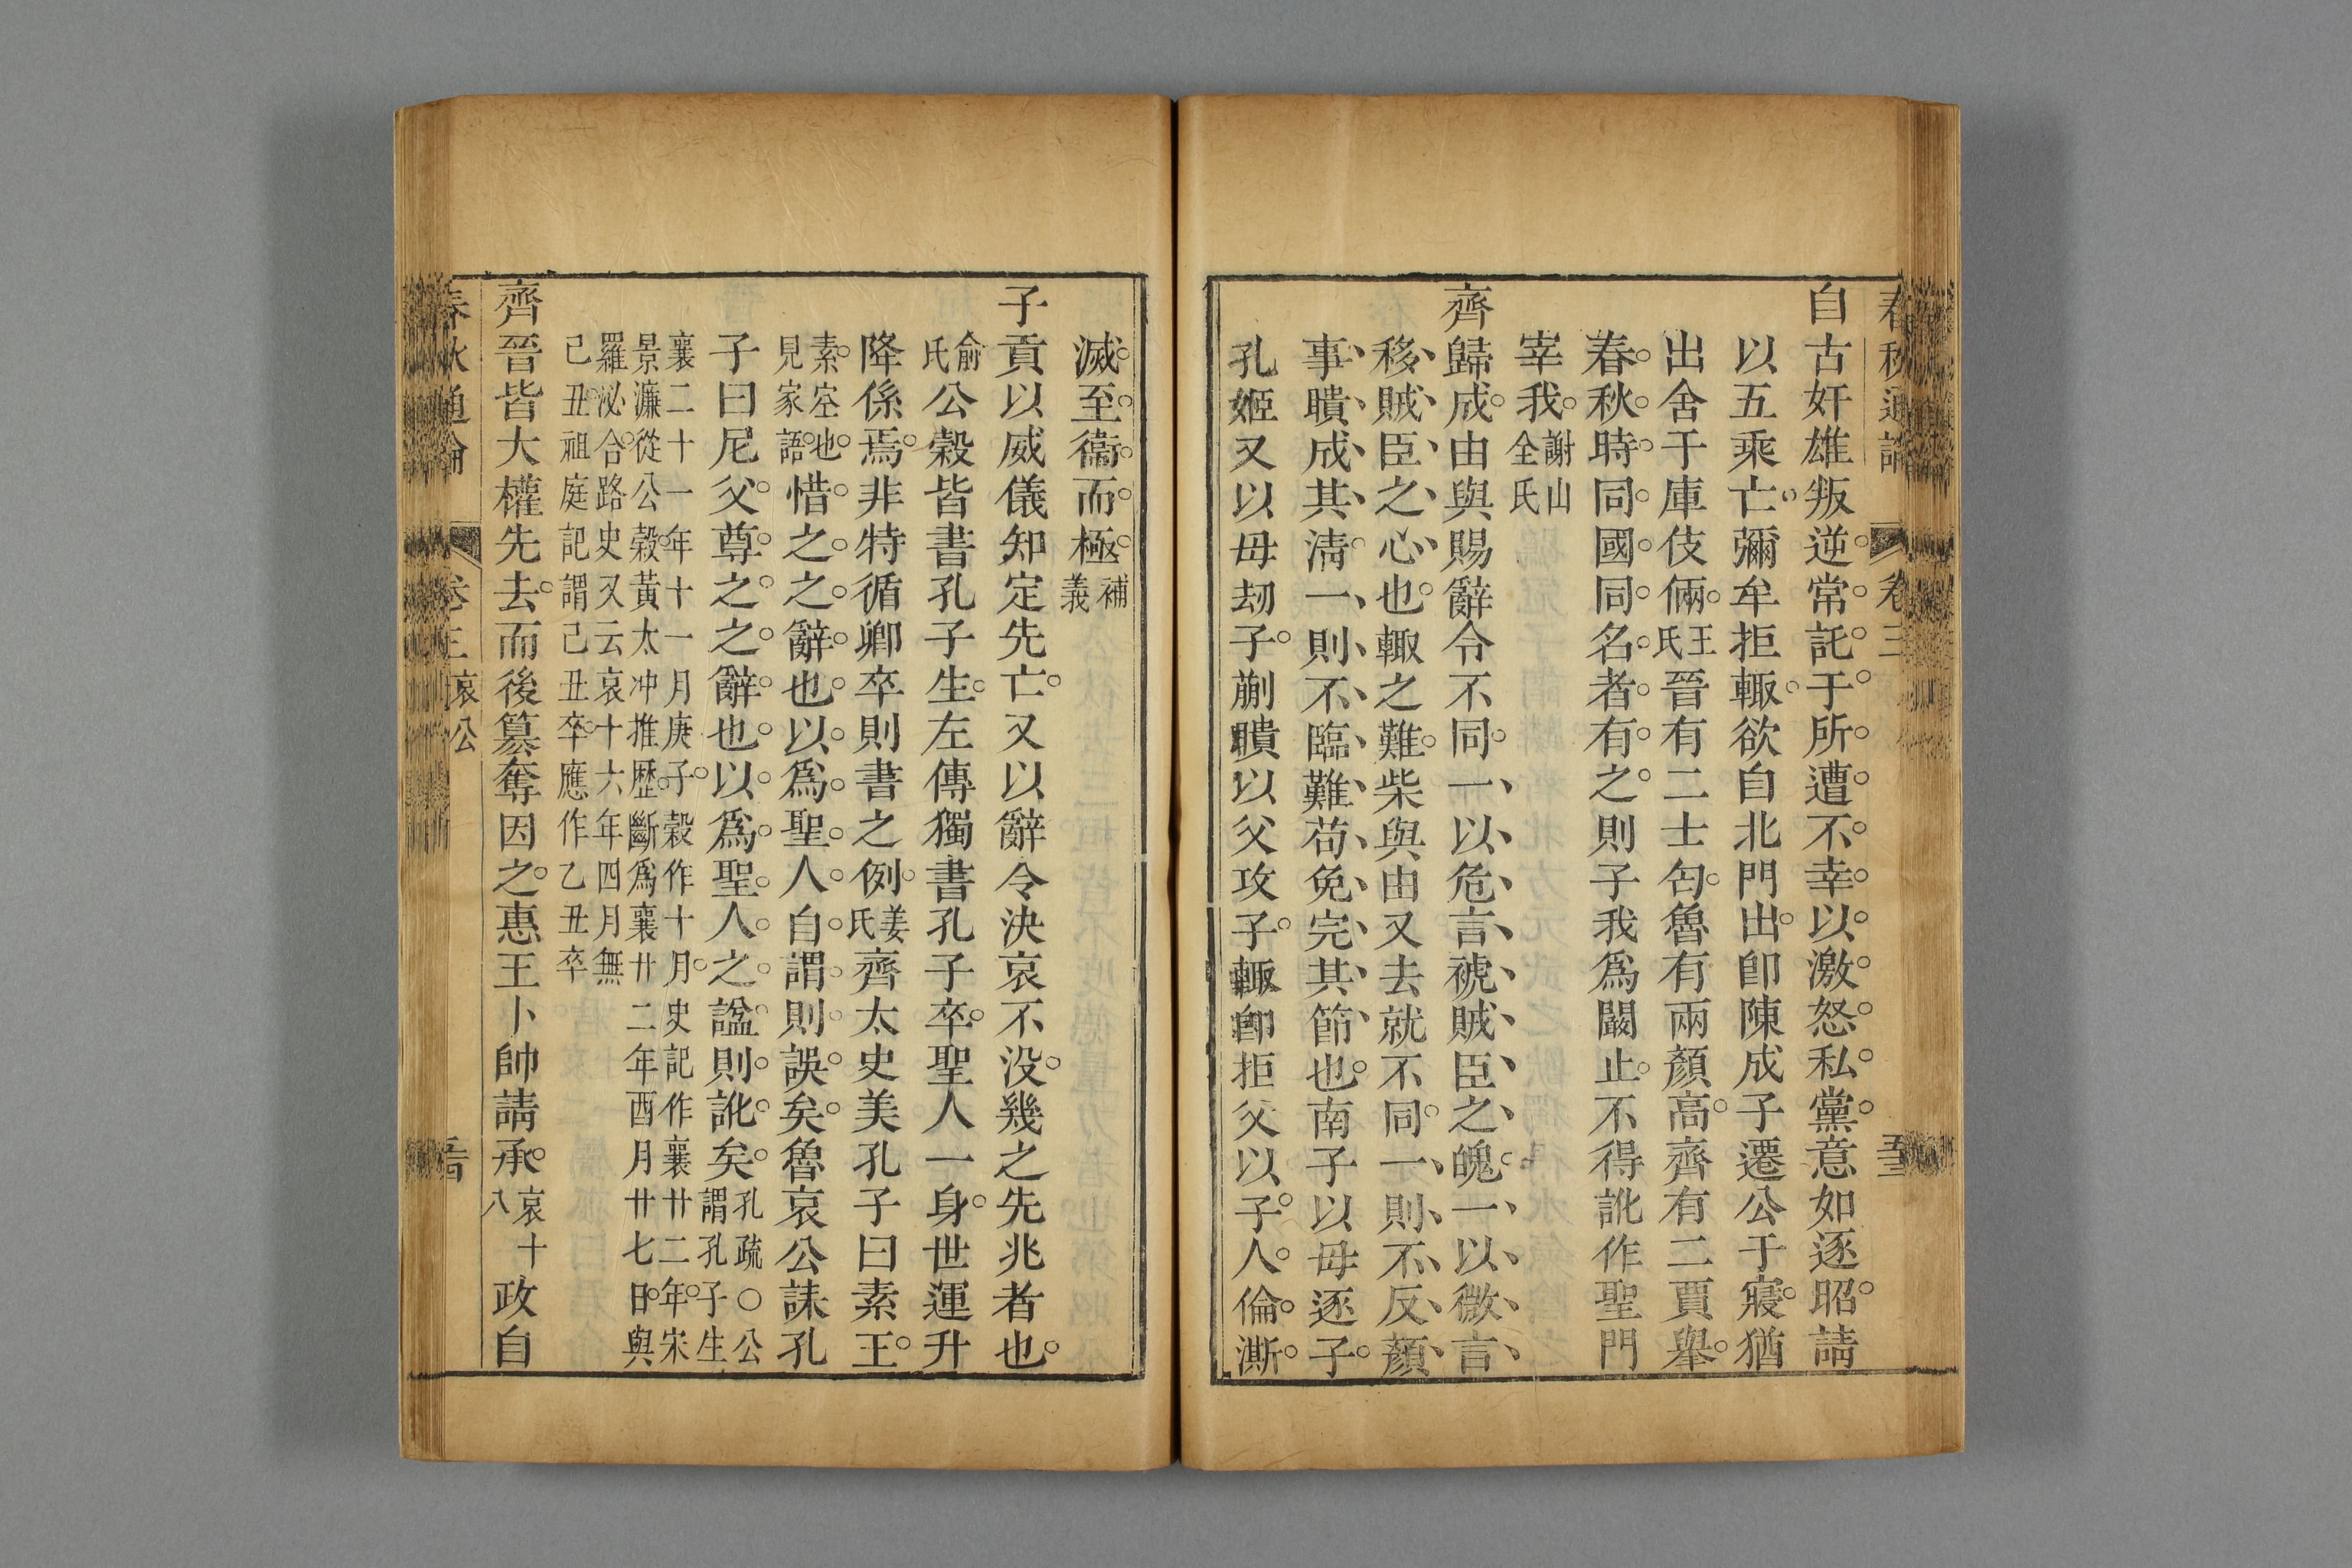 春秋通論 卷三
自古奸雄叛逆常託于所遭不幸以激怒私黨意如逐昭請
以五乘亡彌牟拒輙欲自北門出卽陳成子遷公于寢猶
出舍于庫伎倆王氏晉有二士匄魯有兩顏高齊有二賈舉
春秋時同國同名者有之則子我爲闞止不得訛作聖門
宰我謝山全氏
齊歸成由與賜辭令不同一以危言禠賊臣之魄一以微言
移賊臣之心也輙之難柴與由又去就不同一則不反顏
事聵成其淸一則不臨難苟免完其節也南子以母逐子
孔姬又以母刼子蒯聵以父攻子輙卽拒父以子人倫澌
滅至衞而極補義
子貢以威儀知定先亡又以辭令決哀不没幾之先兆者也
俞氏公穀皆書孔子生左傳獨書孔子卒聖人一身世運升
降係焉非特循卿卒則書之例姜氏齊太史美孔子曰素王
素空也見家語惜之之辭也以爲聖人自謂則誤矣魯哀公誄孔
子曰尼父尊之之辭也以爲聖人之諡則訛矣孔疏○公謂孔子生
襄二十一年十一月庚子穀作十月史記作襄廿二年宋
景濂從公穀黃太冲推歷斷爲襄廿二年酉月廿七日與
羅泌合路史又云哀十六年四月無
己丑祖庭記謂己丑卒應作乙丑卒
齊晉皆大權先去而後篡奪因之惠王卜帥請承哀十八政自
春秋通論 卷三 哀公